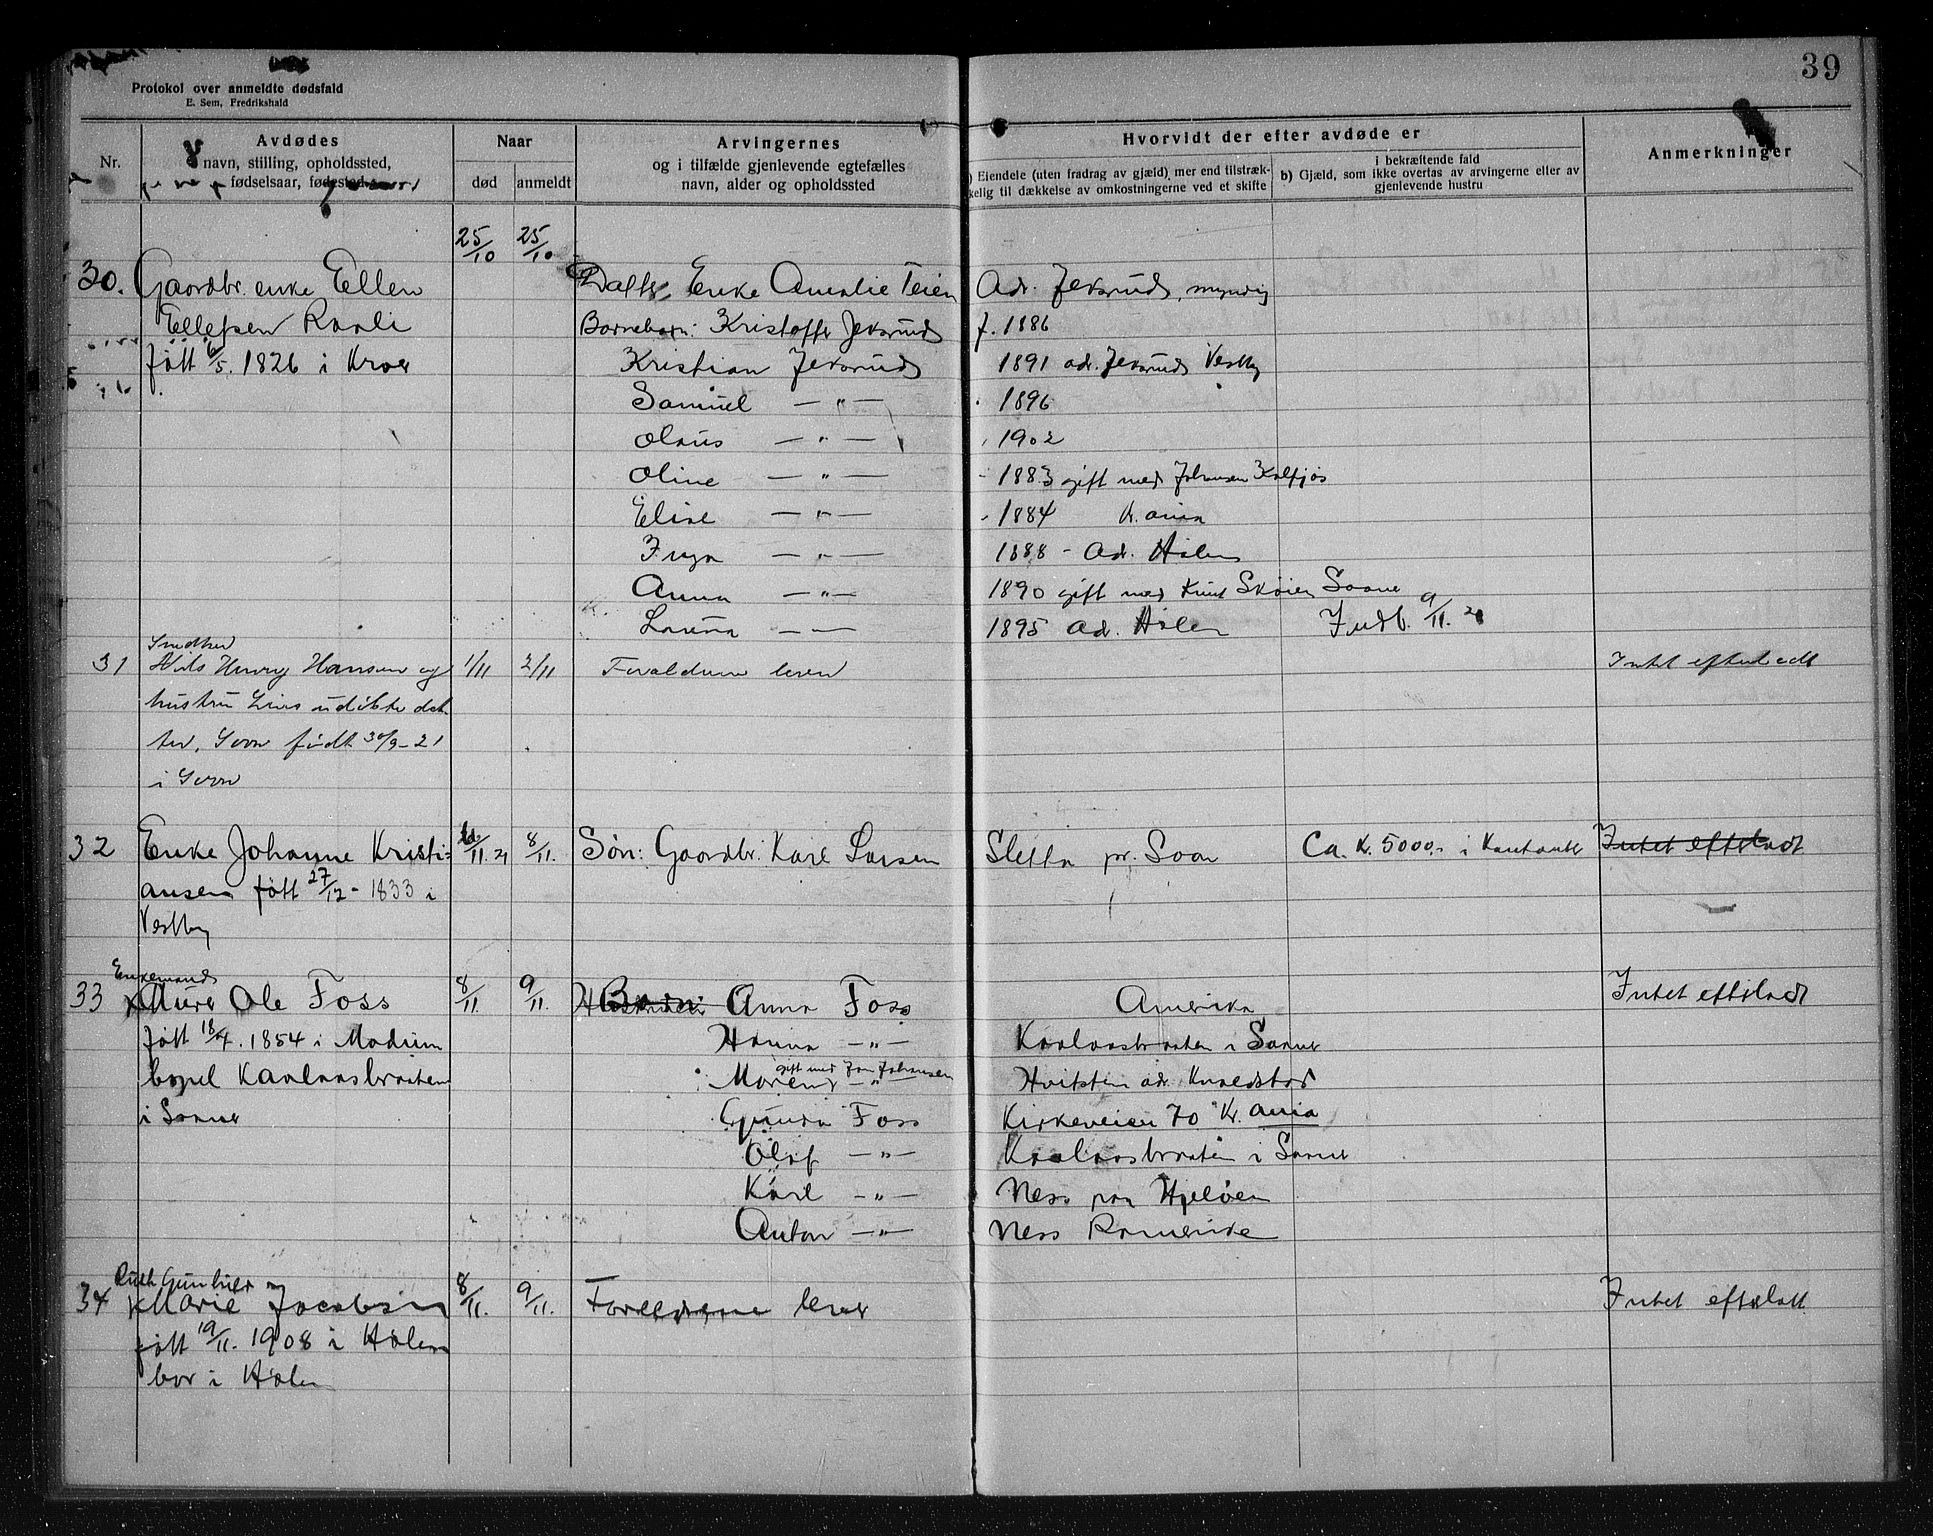 39
Protokol over anmeldte dødsfald
E. Sem, Fredrikshald
Nr.
Avdødes
navn, stilling, opholdssted,
fødselsaar, fødested
Naar
død anmeldt
Arvingernes
og i tilfælde gjenlevende egtefælles
navn, alder og opholdssted
Hvorvidt der efter avdøde er
a) Eiendele (uten fradrag av gjæld) mer end tilstræk-
kelig til dækkelse av omkostningerne ved et skifte
i bekræftende fald
b) Gjæld, som ikke overtas av arvingerne eller av
gjenlevende hustru
Anmerkninger
25/10 25/10
30. Gaardbr. enke Ellen Datter Enke Amalie Teien Adr. Jeksrud, myndig
Ellefsen Barnebarn: Kristoffer Jeksrud f. 1886
født 6/5. 1826 i Kroer Kristian Jeksrud 1891 adr. Jeksrud Vestby
Samuel — " — 1896
Olaus — " — 1902
Oline — " — 1883 gift med Johansen
Elise — " — 1884 Kr.ania
— " — 1888 - Adr. Hølen
Anna — " — 1890 gift med Knut Skøien Saaner
— — 1895 Adr. Hølen Indb. 9/11. 21
31 Nils Henry Hansen og 1/11 2/11 Forældrene lever Intet efterladt
hustru udøbte dat-
ter, Soon født 30/9-21
i Soon
32 Enke Johanne Kristi- 6/11. 21 8/11. Søn: Gaardbr. Karl Larsen Sletta pr. Soon Ca. K. 5000,- i Kontanter Intet efterladt
ansen født 27/12 - 1833 i
Vestby
Enkemand
33 Murer Ole Foss 8/11. 9/11. Barn: Anna Foss Amerika Intet efterladt
født 18/4. 1854 i Modum Hanna — " — Kaalaasbraaten i Saaner
bopel Kaalaasbraaten gift med Johansen — " Hvitsten adr.
i Saaner Foss Kirkeveien 70 Kr. ania
Olaf — " — Kaalaasbraaten i Saaner
Karl — " — Ness paa Hjeløen
Anton — " — Ness Romerike
Ruth Gunhild
34 Marie Jacobsen 8/11. 9/11. Foreldrene lever Intet efterlatt
født 19/11. 1908 i Hølen
bor i Hølen